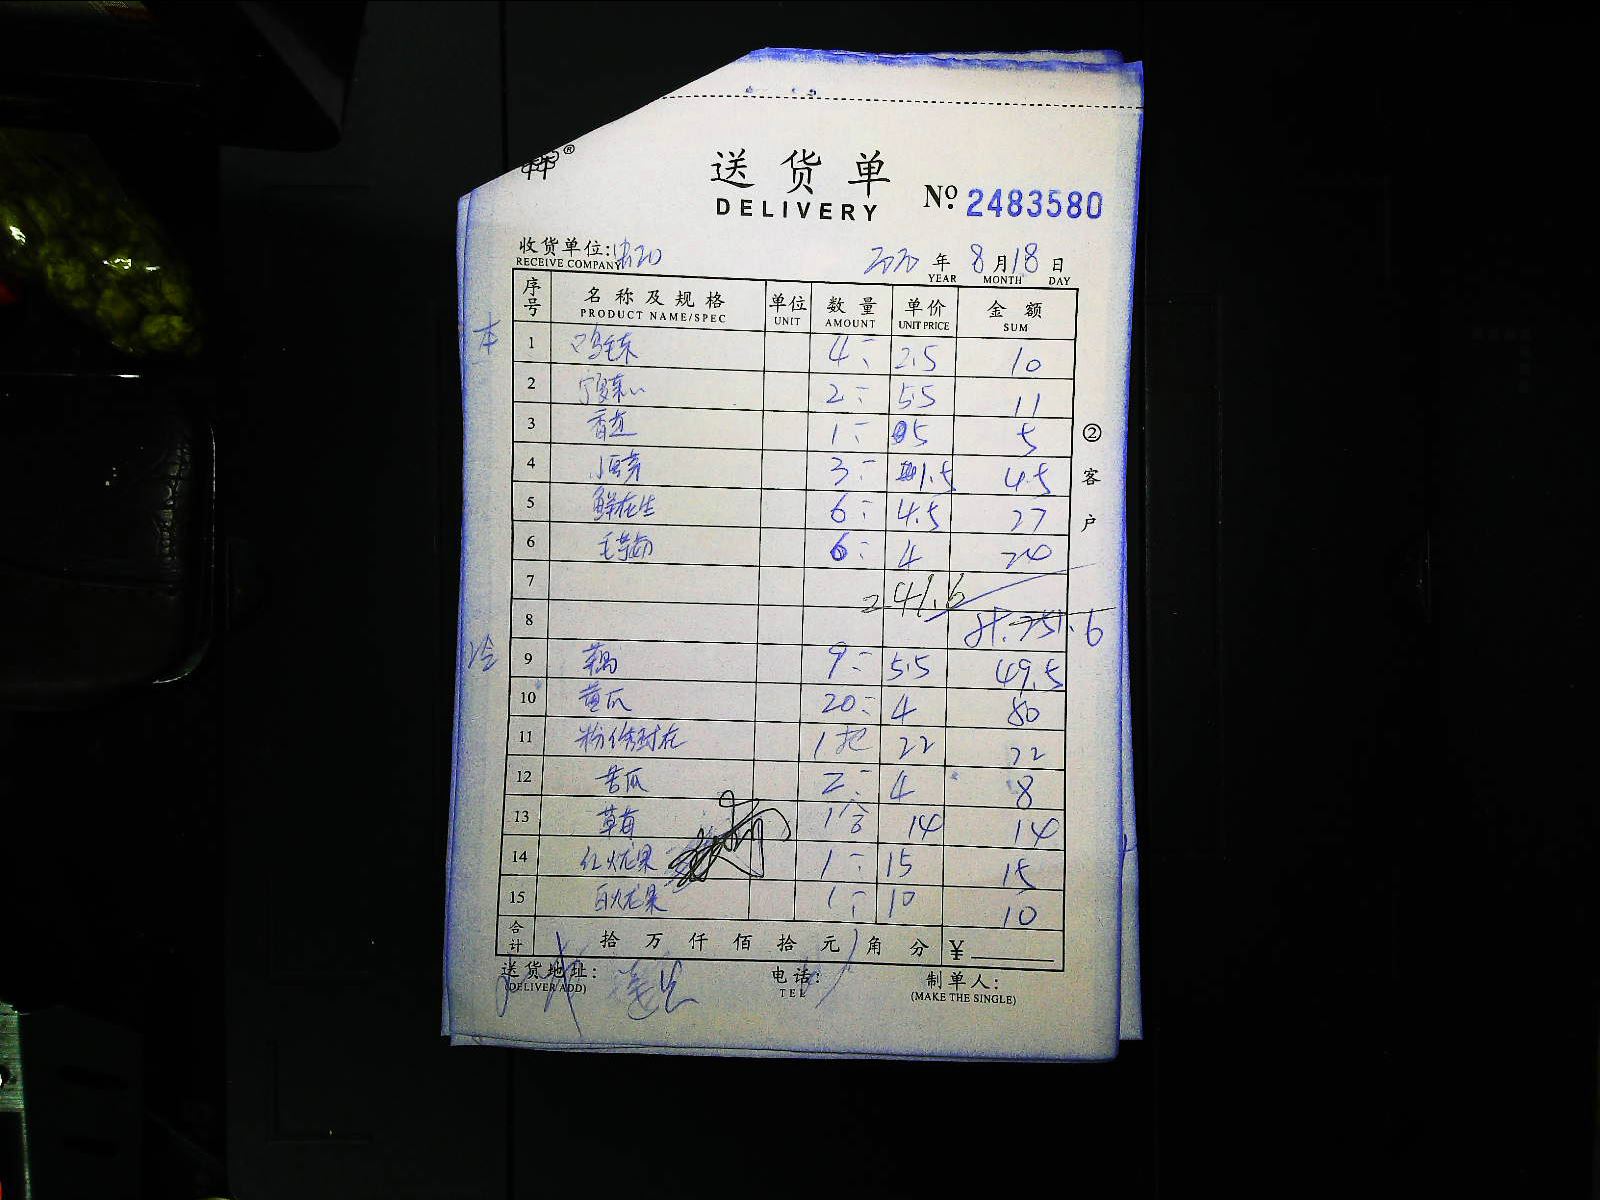 送货单
DELIVERY No. 2483580
收货单位: 2020年8月18日
RECEIVE COMPANY YEAR MONTH DAY
序号 名称及规格 单位 数量 单价 金额
PRODUCT NAME/SPEC UNIT AMOUNT UNIT PRICE SUM
本
1 鸡毛菜 4 2.5 10
2 2 5.5 11
3 1 5 5
4 3 1.5 4.5
5 鲜花生 6 4.5 27
6 6 4 24
7 241.6
8
冷
9 藕 9 5.5 49.5
10 黄瓜 20 4 80
11 1把 22 22
12 苦瓜 2 4 8
13 草莓 1合 14 14
14 红火龙果 1 15 15
15 白火龙果 1 10 10
合计 拾万仟佰拾元角分 ¥
送货地址: 电话: 制单人:
(DELIVER ADD) TEL (MAKE THE SINGLE)
②客户